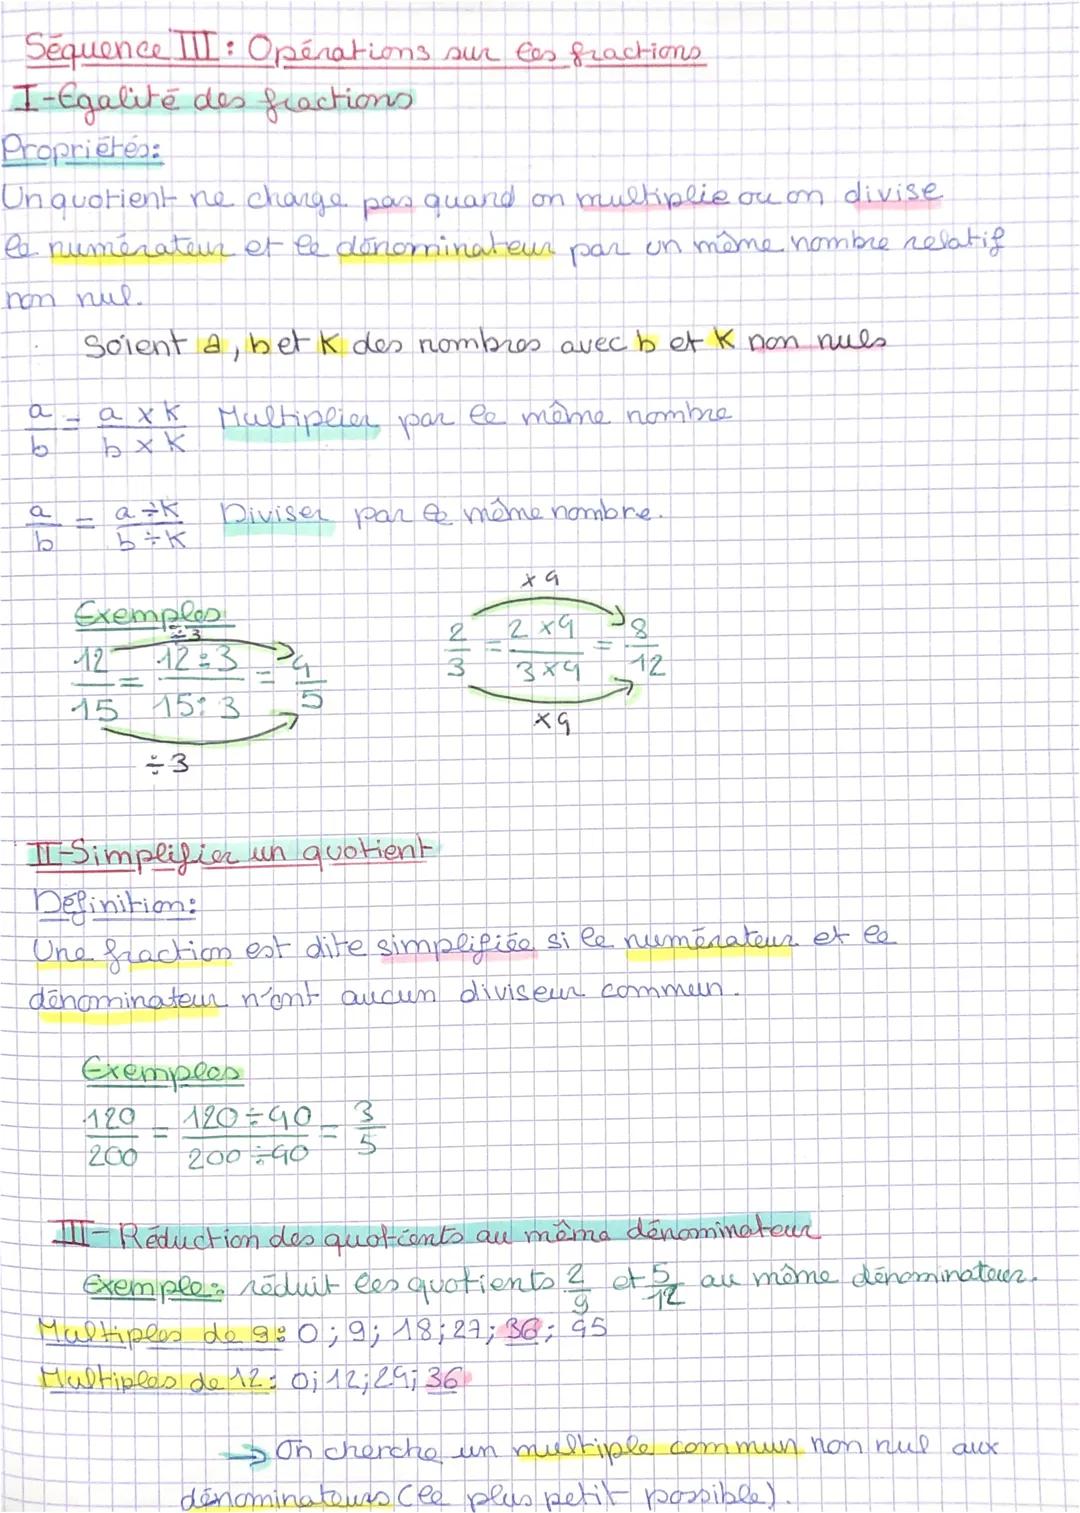 Séquence III : Opérations sur les fractions
I-Egalité des fractions
Propriétés:
Un quotient ne change pas quand on multiplie ou on divise
le numérateur et le dénominateur par un même nombre relatif
non nul.
Soient a, b et K des nombres avec b et K non nuls
a/b = a x K / b x K Multiplier par le même nombre
a/b = a ÷ K / b ÷ K Diviser par le même nombre.
Exemples
÷3
12/15 = 12:3 / 15:3 = 4/5
÷3
x 4
2/3 = 2 x 4 / 3 x 4 = 8/12
x 4
II-Simplifier un quotient
Définition:
Une fraction est dite simplifiée si le numérateur et le
dénominateur n'ont aucun diviseur commun.
Exemples
120/200 = 120 ÷ 40 / 200 ÷ 40 = 3/5
III- Réduction des quotients au même dénominateur
Exemple: réduit les quotients 2/9 et 5/12 au même dénominateur.
Multiples de 9: 0; 9; 18; 27; 36; 45
Multiples de 12: 0; 12; 24; 36
→ On cherche un multiple commun non nul aux
dénominateurs (le plus petit possible).